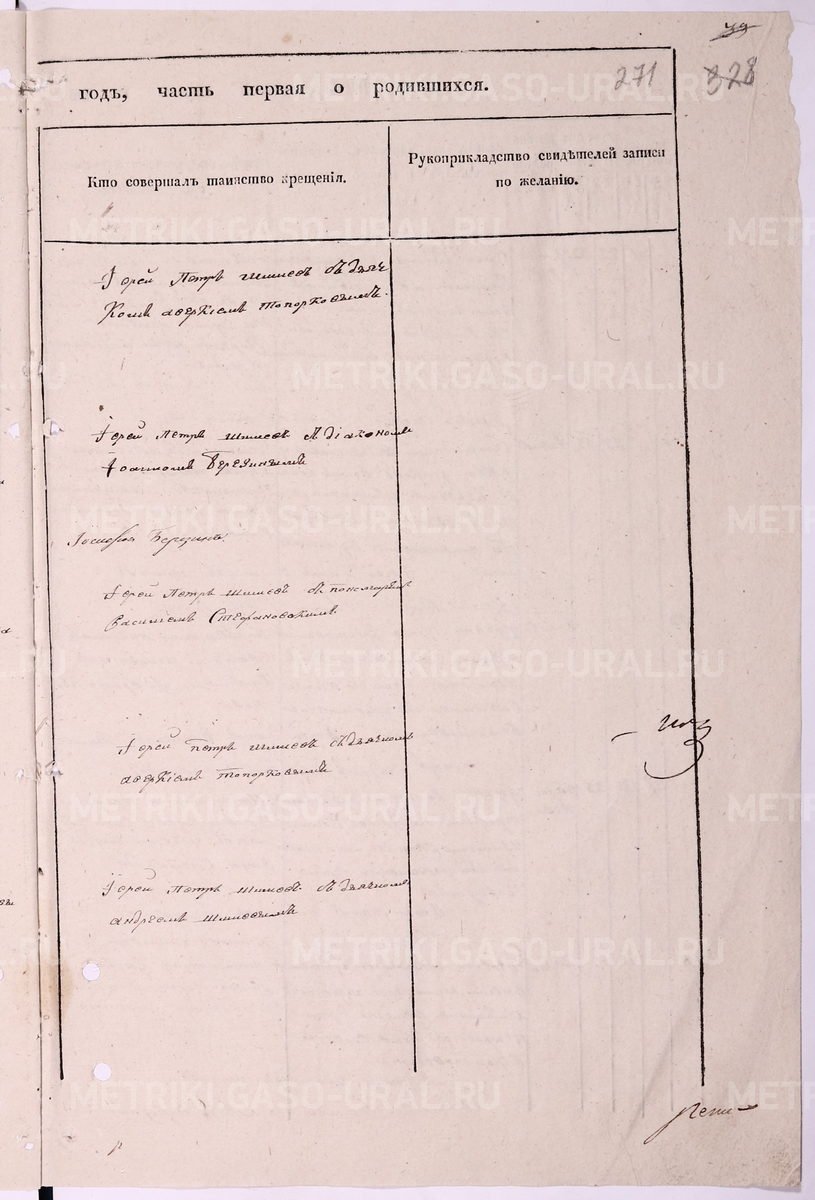 39
271 328
годъ, часть первая о родившихся.
Кто совершалъ таинство крещенія.
Рукоприкладство свидѣтелей записи
по желанію.
Іерей Петръ Шишевъ съ дьяч
комъ аверкіемъ Топорковымъ.
Іерей Петръ Шишевъ съ діакономъ
Іоанномъ Березинымъ
Іерей Петръ Шишевъ съ пономаремъ
Василіемъ Стефановскимъ.
Іерей петръ Шишевъ съ дьячкомъ
аверкіемъ Топорковымъ
Іерей Петръ Шишевъ съ дьячкомъ
андреемъ Шишевымъ
METRIKI.GASO-URAL.RU